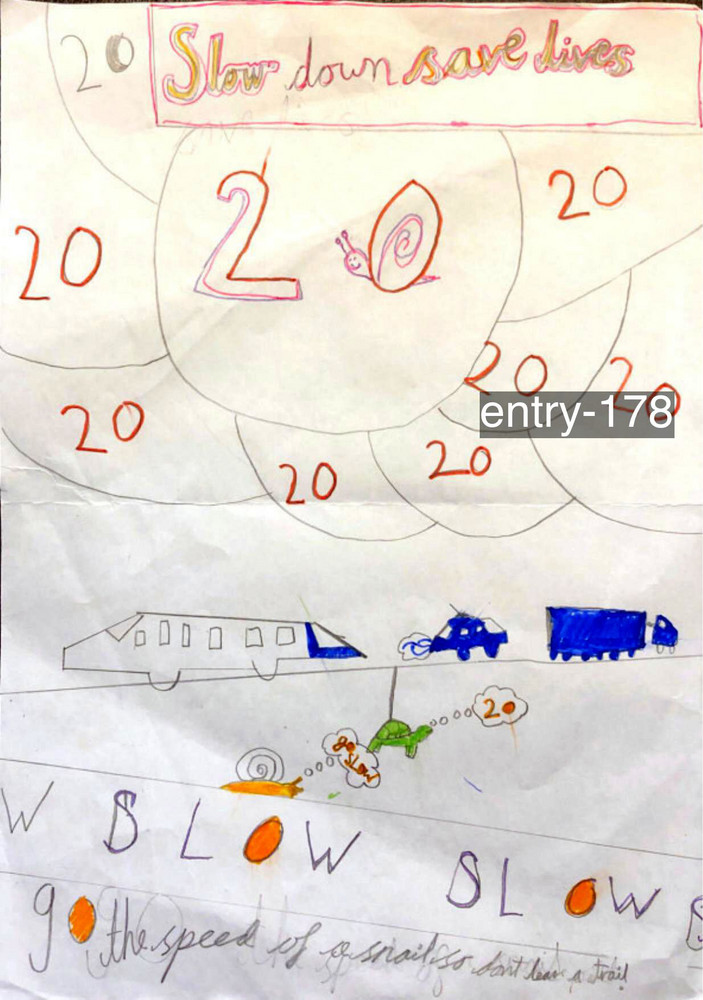 20
Slow down save lives
20
20
20
20
20
20
entry-178
20
20
20
go SLOW
W SLOW SLOW S
go the speed of a snail so dont leave a trail